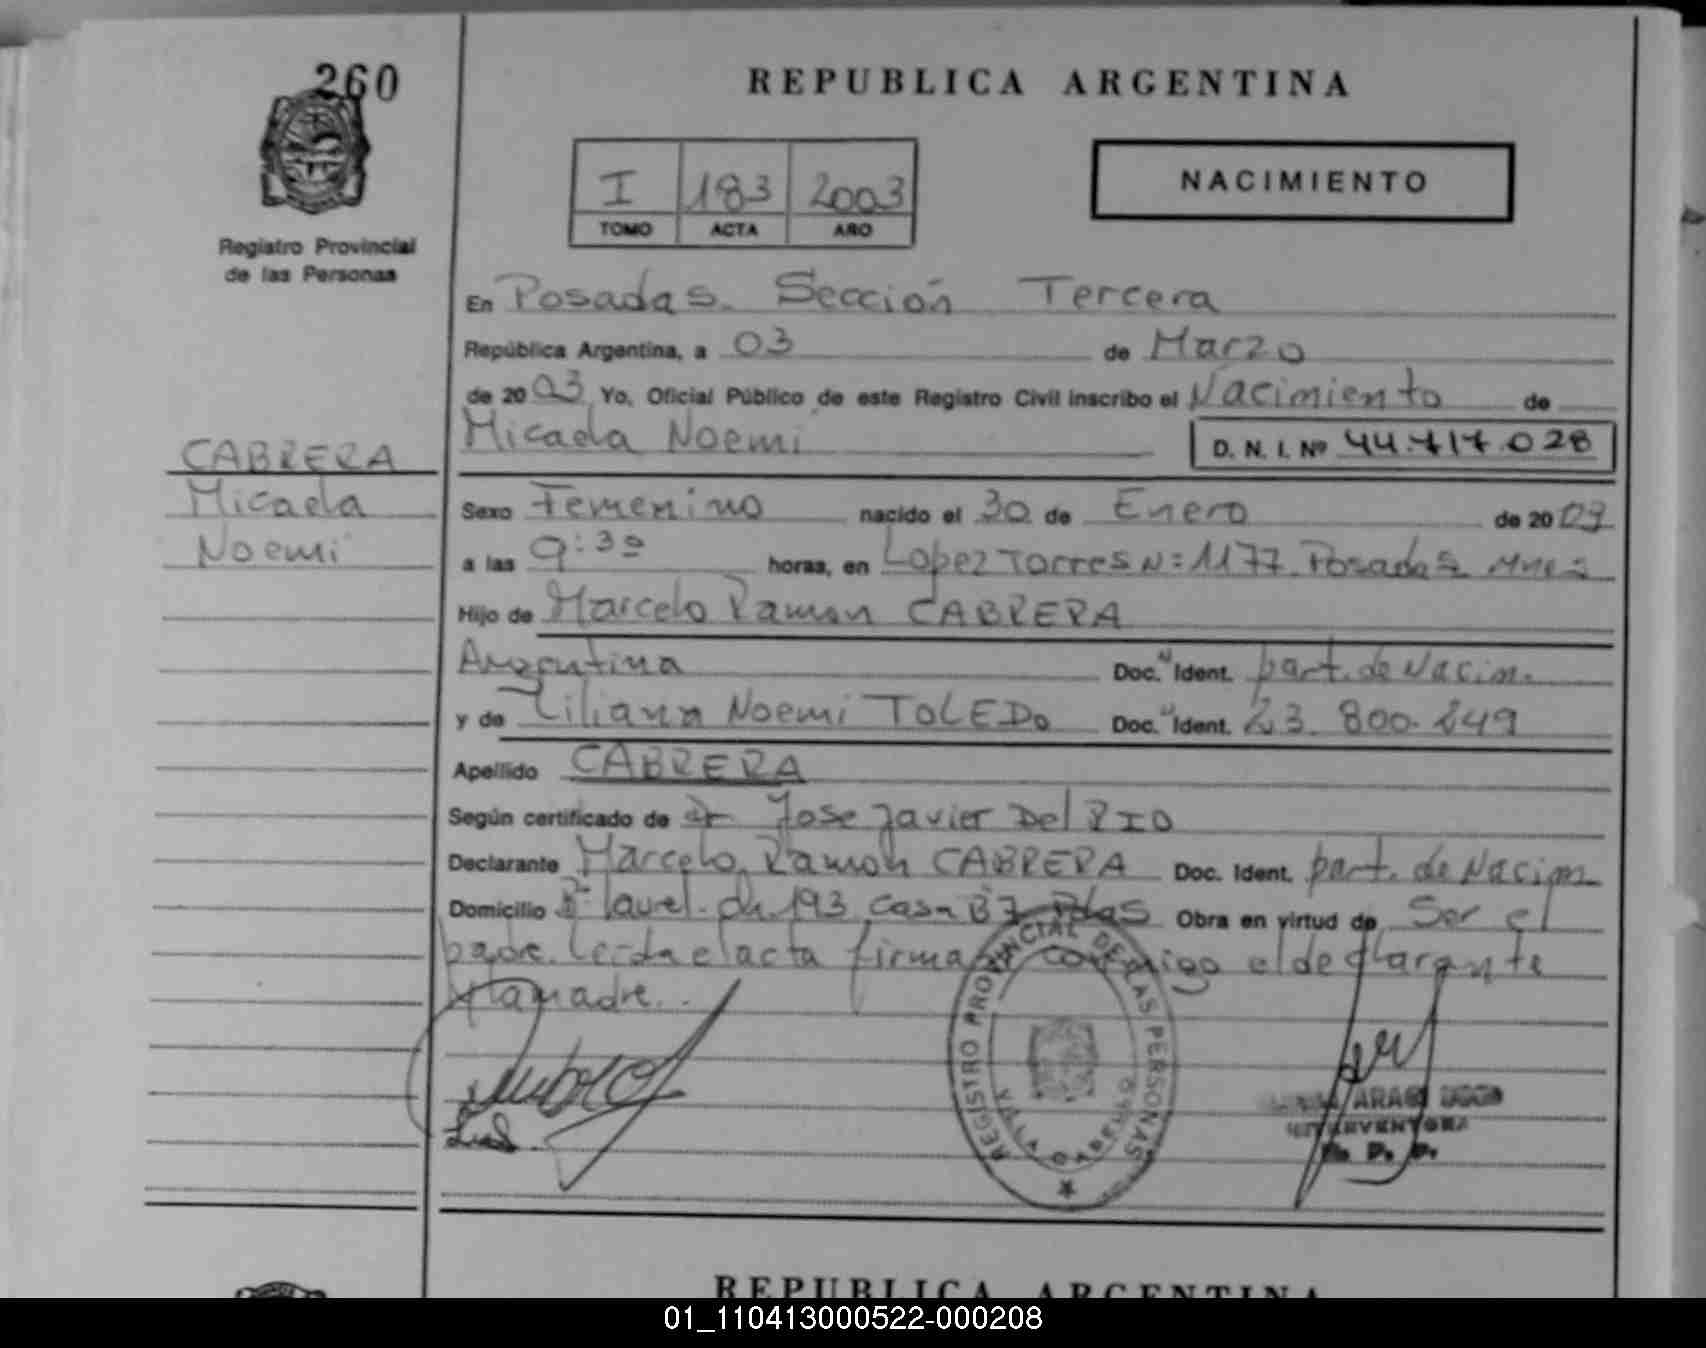 260
REPUBLICA ARGENTINA
I 183 2003
TOMO ACTA AÑO
NACIMIENTO
Registro Provincial
de las Personas
En Posadas. Sección Tercera
República Argentina, a 03 de Marzo
de 2003 Yo, Oficial Público de este Registro Civil inscribo el Nacimiento de
Micaela Noemi D. N. I. Nº 44.717.028
CABRERA
Micaela
Noemi
Sexo Femenino nacido el 30 de Enero de 2003
a las 9:30 horas, en Lopez Torres N=1177 Posadas Mnes
Hijo de Marcelo Ramon CABRERA
Argentina Doc. N Ident. part. de Nacim.
y de Liliana Noemi TOLEDO Doc. N Ident. 23.800.249
Apellido CABRERA
Según certificado de Dr Jose Javier Del RIO
Declarante Marcelo Ramon CABRERA Doc. Ident. part. de Nacim
Domicilio Bº laurel. ch. 193 casa B7 Pdas Obra en virtud de Ser el
padre. Leida el acta firma conmigo el declarante
y la madre..
REGISTRO PROVINCIAL DE LAS PERSONAS
VILLA CABELLO
INTERVENTORA
REPUBLICA ARGENTINA
01_110413000522-000208